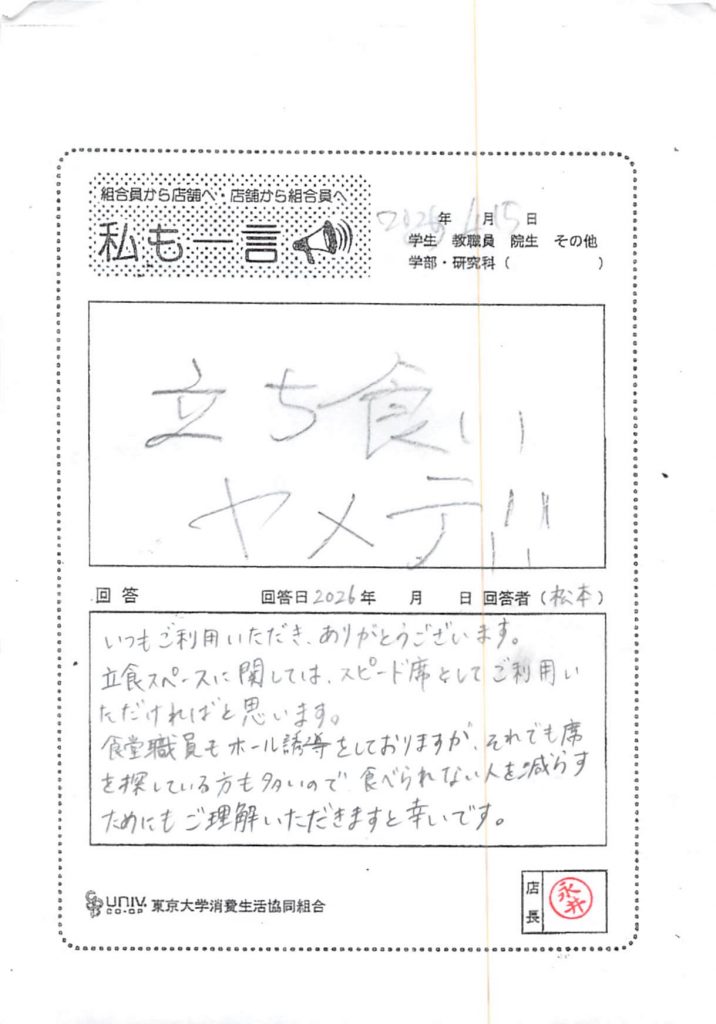 組合員から店舗へ・店舗から組合員へ
私も一言
2026年 4月15日
学生 教職員 院生 その他
学部・研究科（ ）
立ち食い
ヤメテ!!!
回答 回答日2026年 月 日 回答者（松本）
いつもご利用いただき、ありがとうございます。
立食スペースに関しては、スピード席としてご利用い
ただければと思います。
食堂職員もホール誘導をしておりますが、それでも席
を探している方も多いので食べられない人を減らす
ためにもご理解いただきますと幸いです。
UNIV. CO-OP 東京大学消費生活協同組合
店長 永井